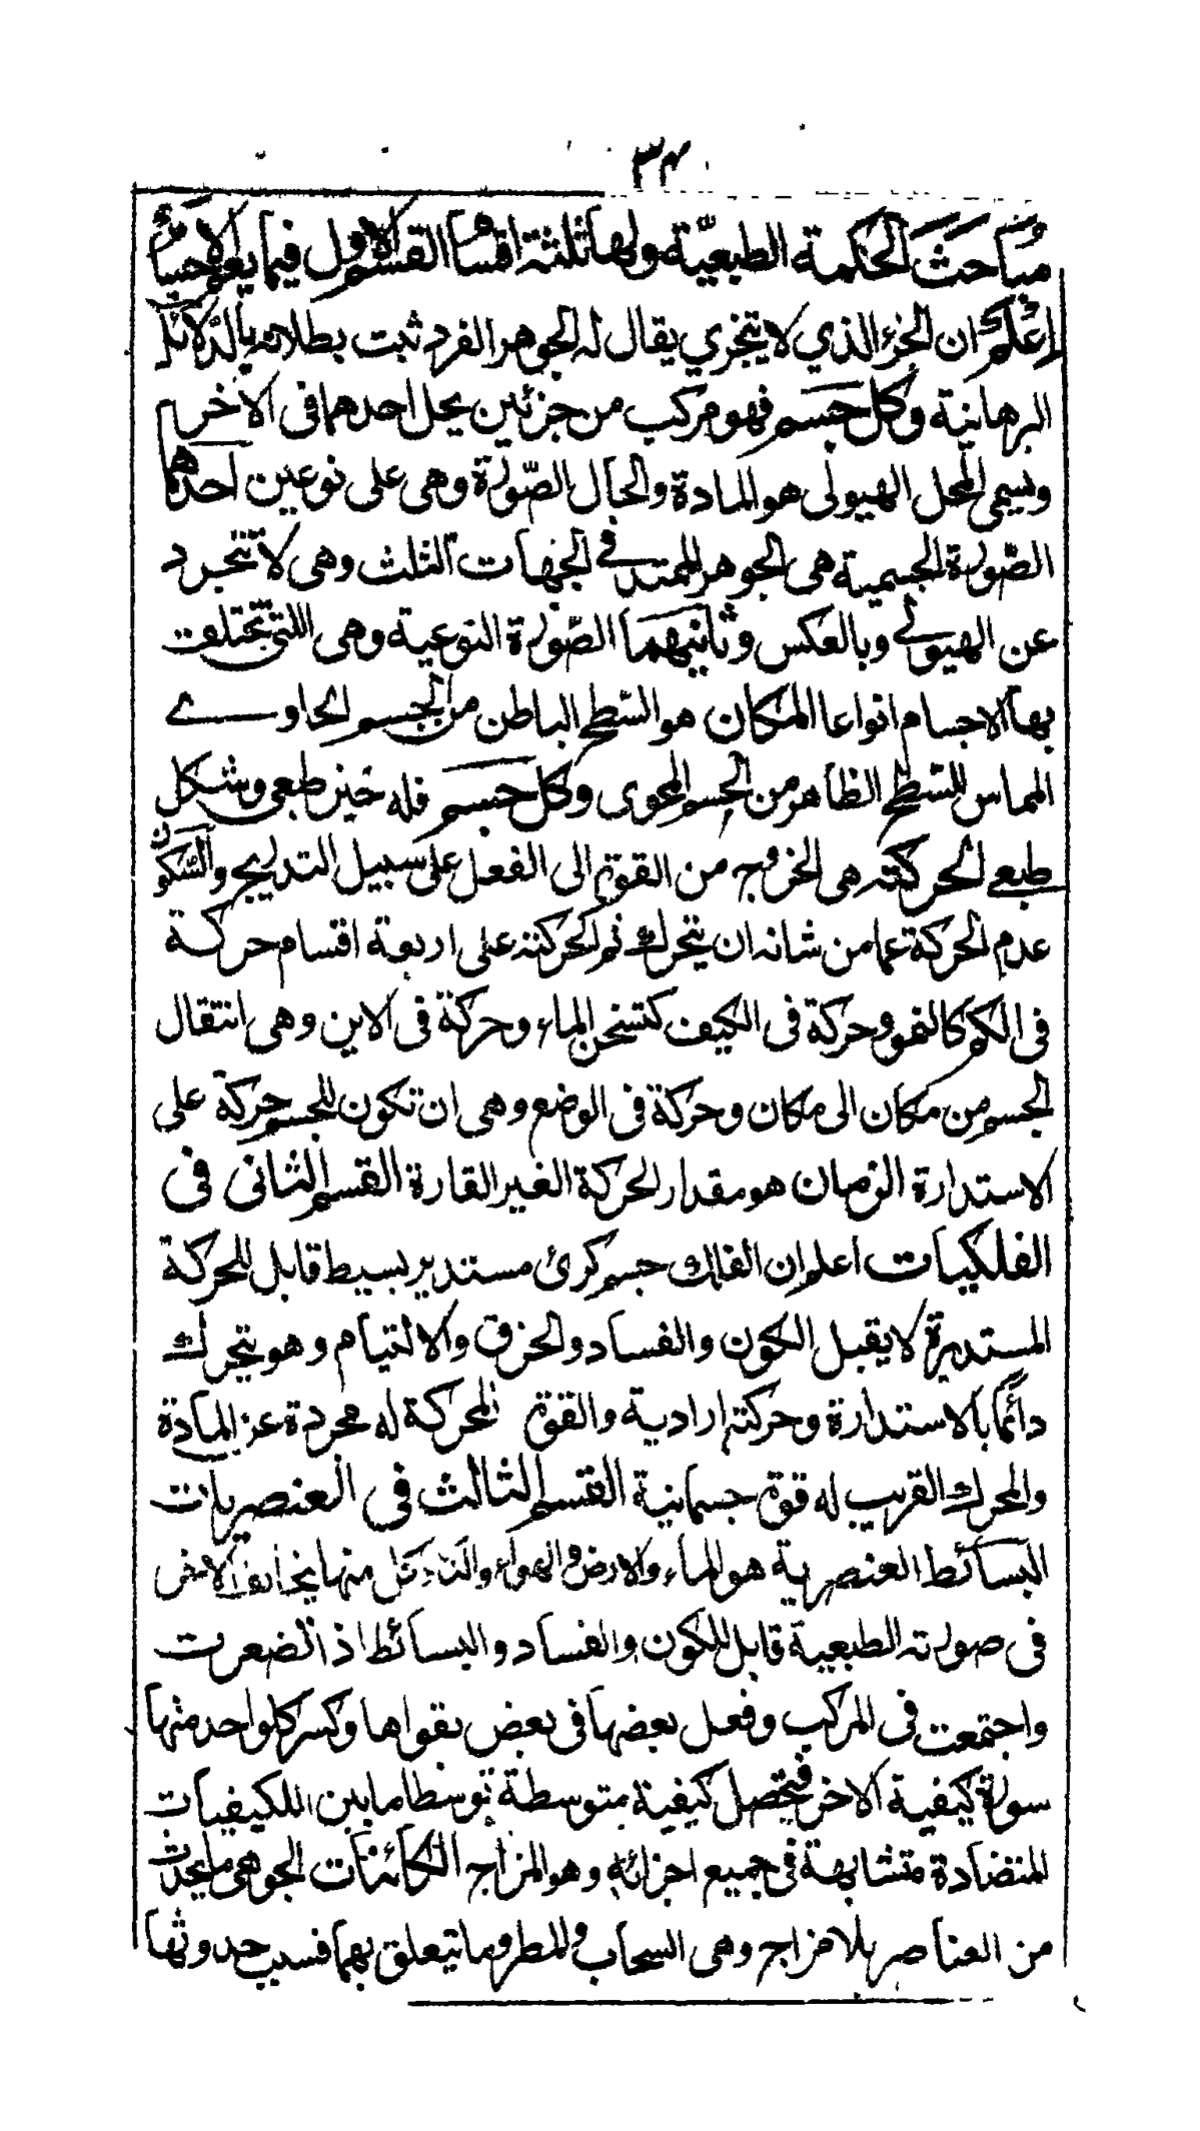 ٣٤
مباحث الحكمة الطبعية ولها ثلثة اقسام القسم الاول فيما يعم الاجسام
اعلم ان الجزء الذي لا يتجزي يقال له الجوهر الفرد ثبت بطلانه بالدلائل
البرهانية وكل جسم فهو مركب من جزئين يحل احدهما فى الآخر
ويسمى المحل الهيولى هو المادة والحال الصورة وهى على نوعين احدهما
الصورة الجسمية هى الجوهر الممتد فے الجهات الثلث وهى لا تتجرد
عن الهيولے وبالعكس وثانيهما الصورة النوعية وهى اللتى تختلف
بها الاجسام انواعا المكان هو السطح الباطن من الجسم الحاوے
المماس للسطح الظاهر من الجسم المحوى وكل جسم فله حيز طبعى وشكل
طبعے الحركته هى الخروج من القوة الى الفعل على سبيل التدريج والسكون
عدم الحركة عما من شانه ان يتحرك ثم الحركته على اربعة اقسام حركة
فى الكم كالنمو وحركة فى الكيف كتسخن الماء وحركة فى الاين وهى انتقال
الجسم من مكان الى مكان وحركة فى الوضع وهى ان تكون للجسم حركة على
الاستدارة الزمان هو مقدار الحركة الغير القارة القسم الثانى فى
الفلكيات اعلم ان الفلك جسم كرى مستدير بسيط قابل للحركة
المستديرة لا يقبل الكون والفساد والخرق والالتيام وهو يتحرك
دائما بالاستدارة وحركته ارادية والقوة المحركة له مجردة عن المادة
والمحرك القريب له قوة جسمانية القسم الثالث فى العنصريات
البسائط العنصرية هو الماء والارض والهواء والنار كل منها يخالف الاخر
فى صورته الطبعية قابل للكون والفساد والبسائط اذا تصغرت
واجتمعت فى المركب وفعل بعضها فى بعض بقواها وكسر كلواحد منها
سورة كيفية الاخر فيحصل كيفية متوسطة توسطا ما بين الكيفيات
المتضادة متشابهة فى جميع اجزائه وهو المزاج الكائنات الجو هى ما يحدث
من العناصر بلا مزاج وهى السحاب والمطر وما يتعلق بهما فسبب حدوثها